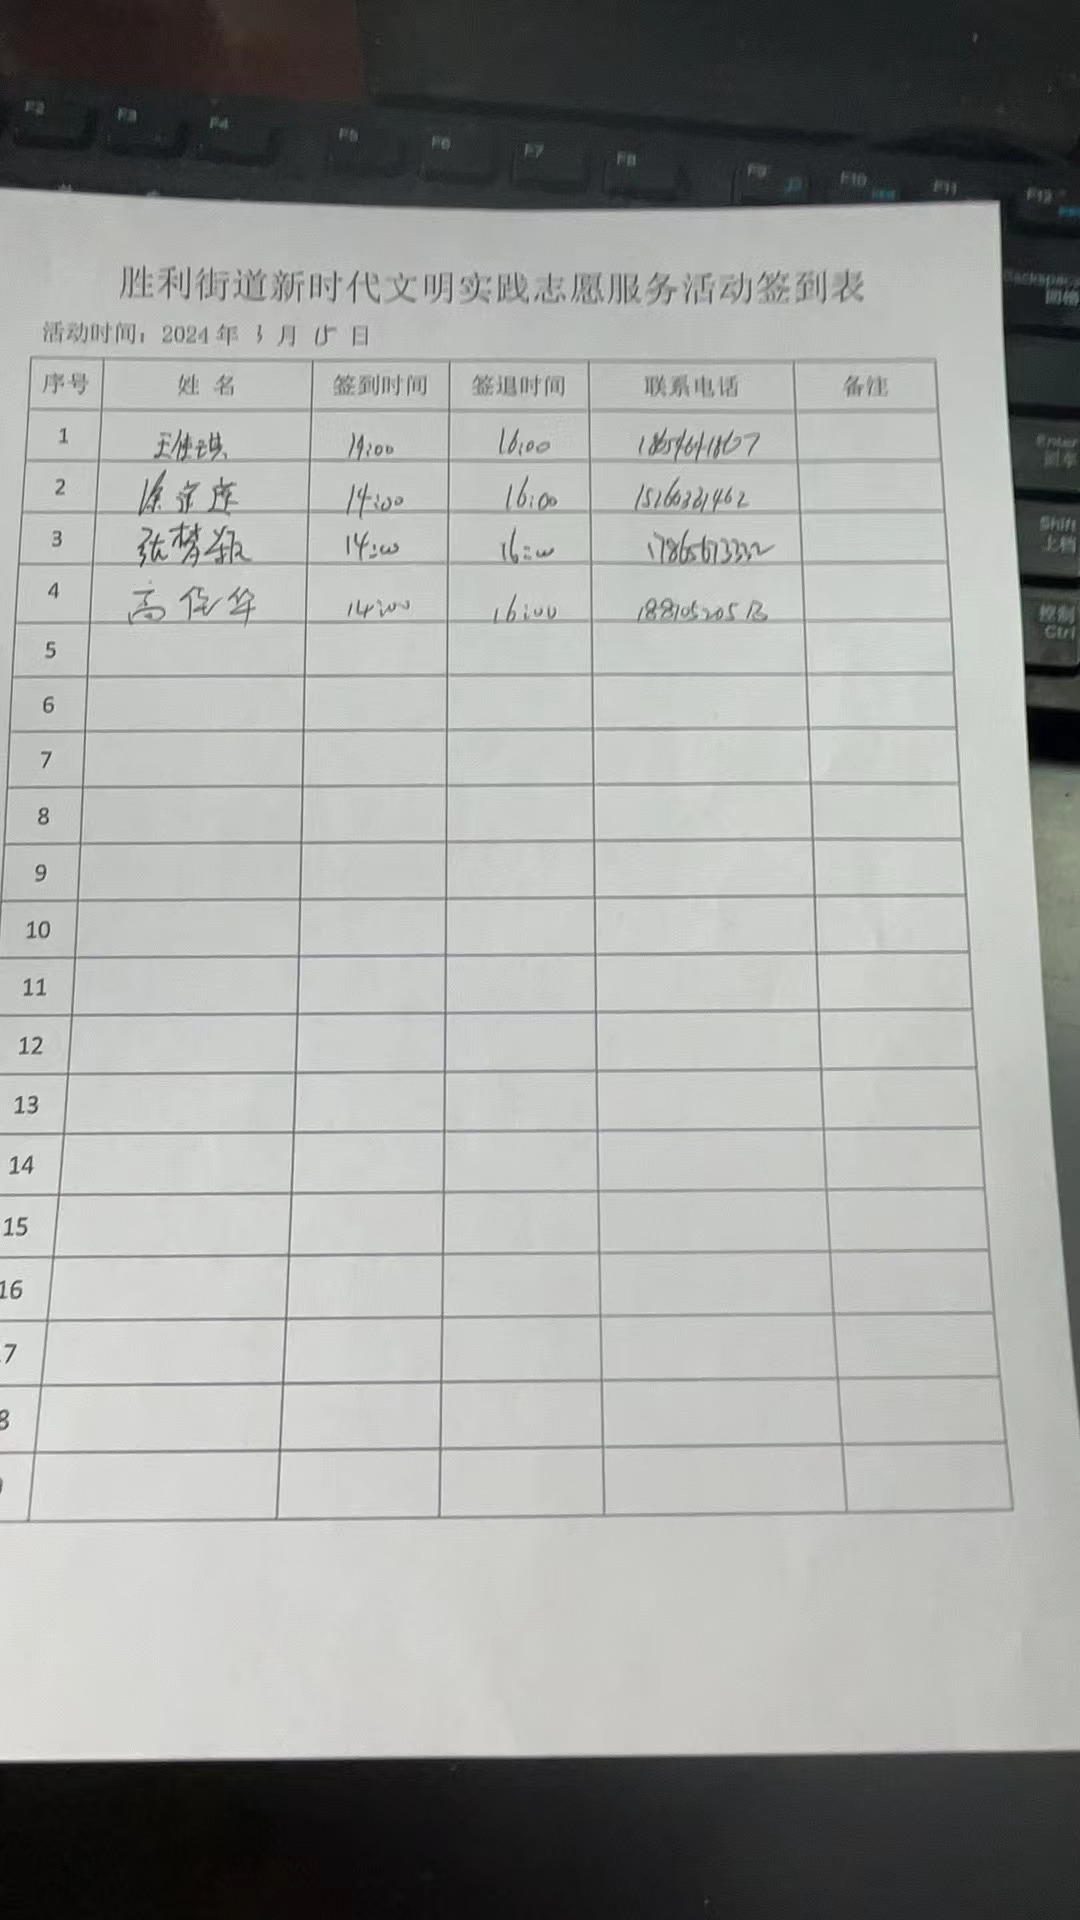 F2 F3 F4 F5 F6 F7 F8 F9 F10 F11 F12
Backspace
Enter
Shift
上档
控制
Ctrl
胜利街道新时代文明实践志愿服务活动签到表
活动时间：2024 年 3 月 15 日
序号 姓 名 签到时间 签退时间 联系电话 备注
1 14:00 16:00
2 14:00 16:00 15266331462
3 张梦颖 14:00 16:00 17865673332
4 高佳华 14:00 16:00 18810520513
5
6
7
8
9
10
11
12
13
14
15
16
7
8